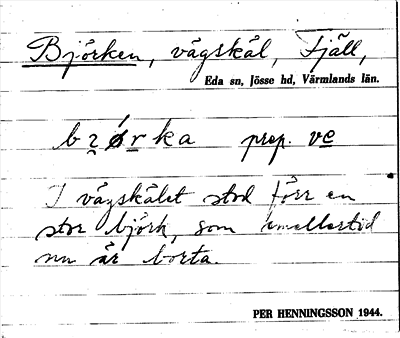 Björken, vägskäl, Fjäll,
Eda sn, Jösse hd, Värmlands län.
bzǿrka prep. ve
I vägskälet stod förr en
stor björk, som emellertid
nu är borta.
PER HENNINGSSON 1944.